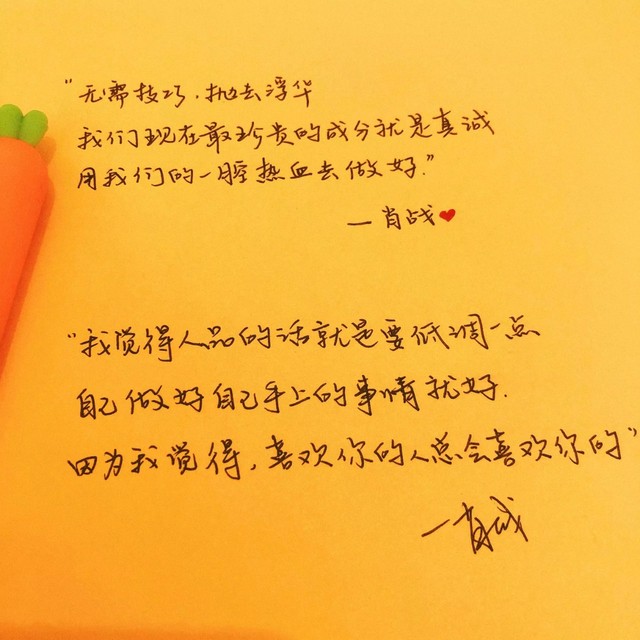 “无需技巧.抛去浮华
我们现在最珍贵的成分就是真诚
用我们的一腔热血去做好.”
—肖战
“我觉得人品的话就是要低调一点
自己做好自己手上的事情就好.
因为我觉得,喜欢你的人总会喜欢你的”
—肖战